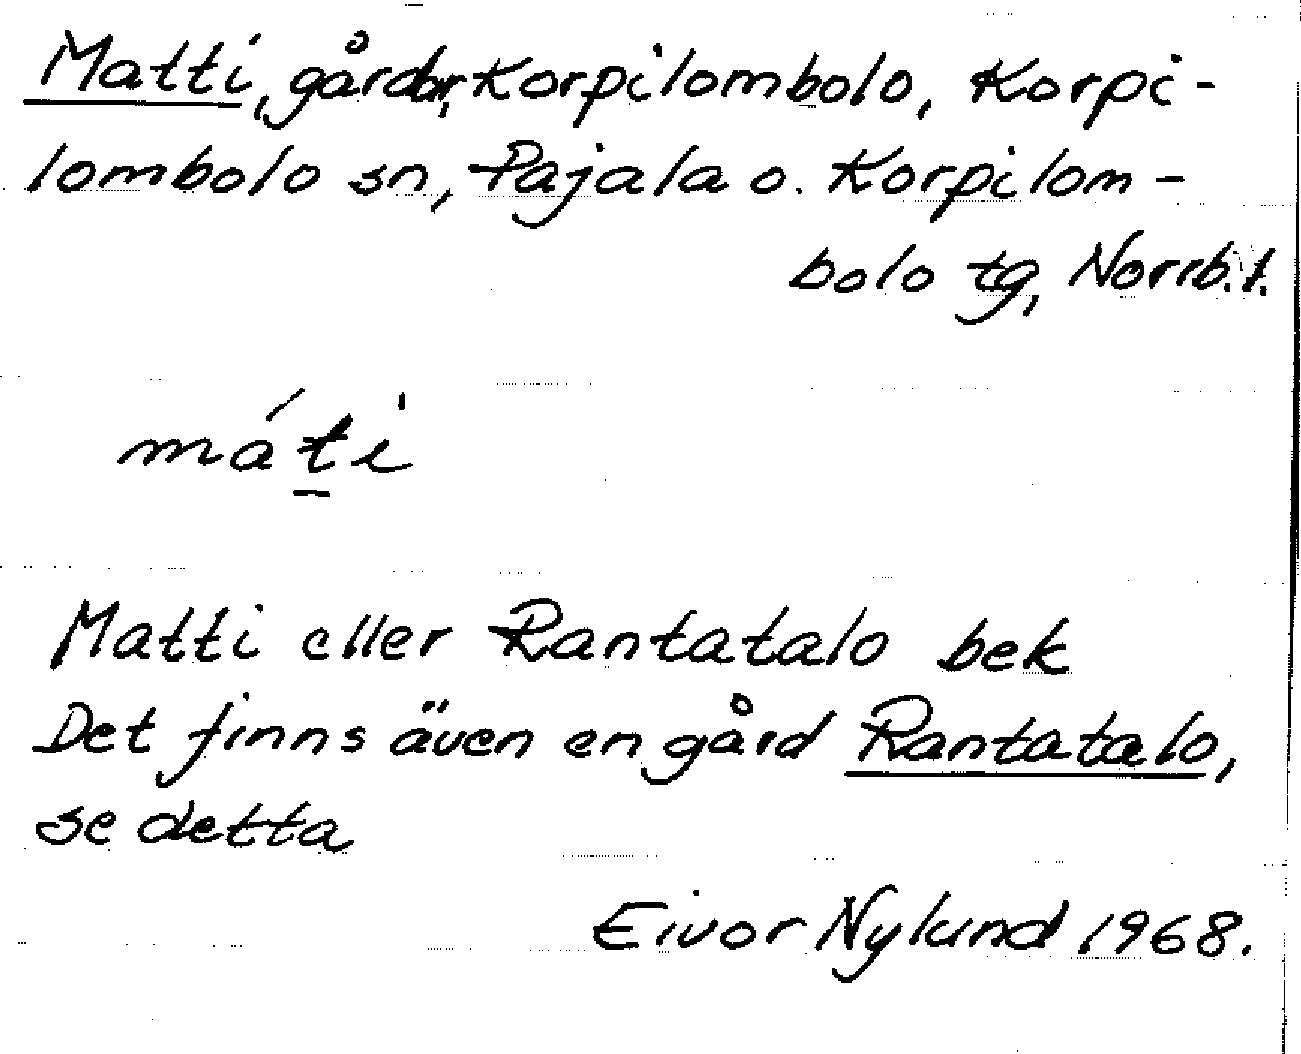 Matti, gårdar, Korpilombolo, Korpi-
lombolo sn, Pajala o. Korpilom-
bolo tg, Norrb. l.
máṯi
Matti eller Rantatalo bek
Det finns även en gård Rantatalo,
se detta
Eivor Nylund 1968.